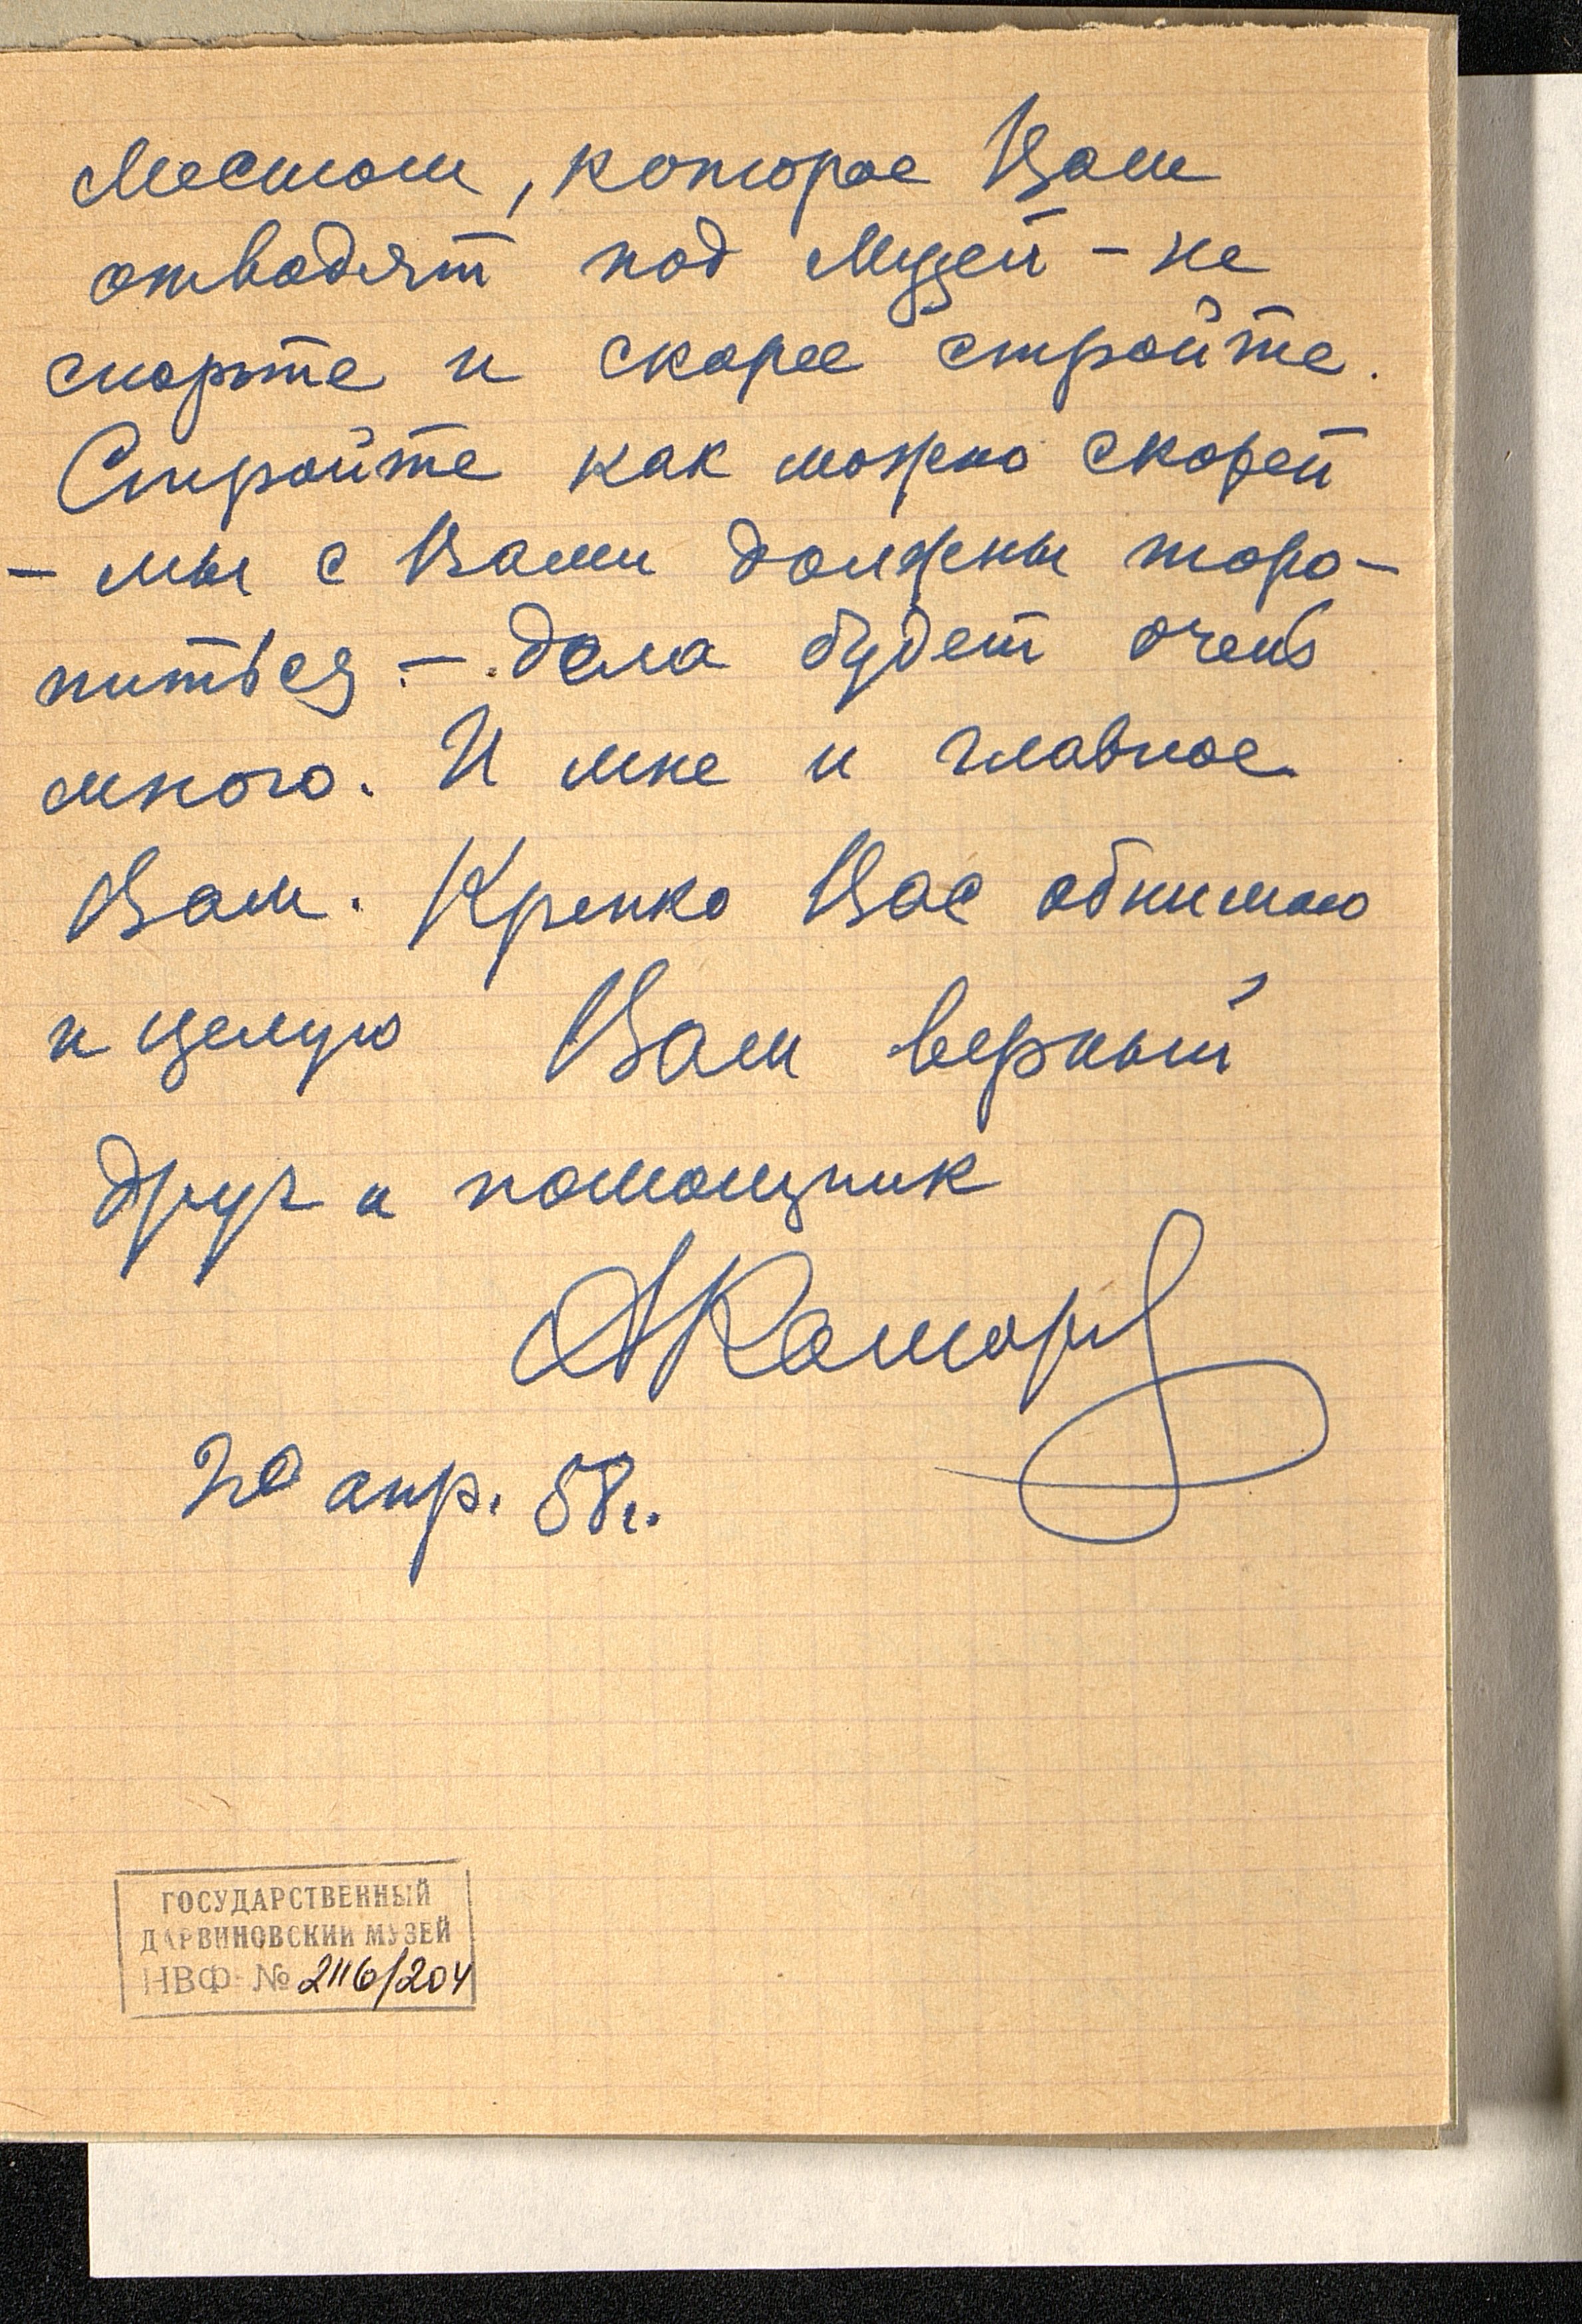 местом, которое Вам
отводят под Музей – не
спорьте и скорее стройте.
Стройте как можно скорей
– мы с Вами должны торо-
питься – дела будет очень
много. И мне и главное
Вам. Крепко Вас обнимаю
и целую Ваш верный
друг и помощник
АКомаров
20 апр. 58г.
ГОСУДАРСТВЕННЫЙ
ДАРВИНОВСКИЙ МУЗЕЙ
НВФ № 2116/204